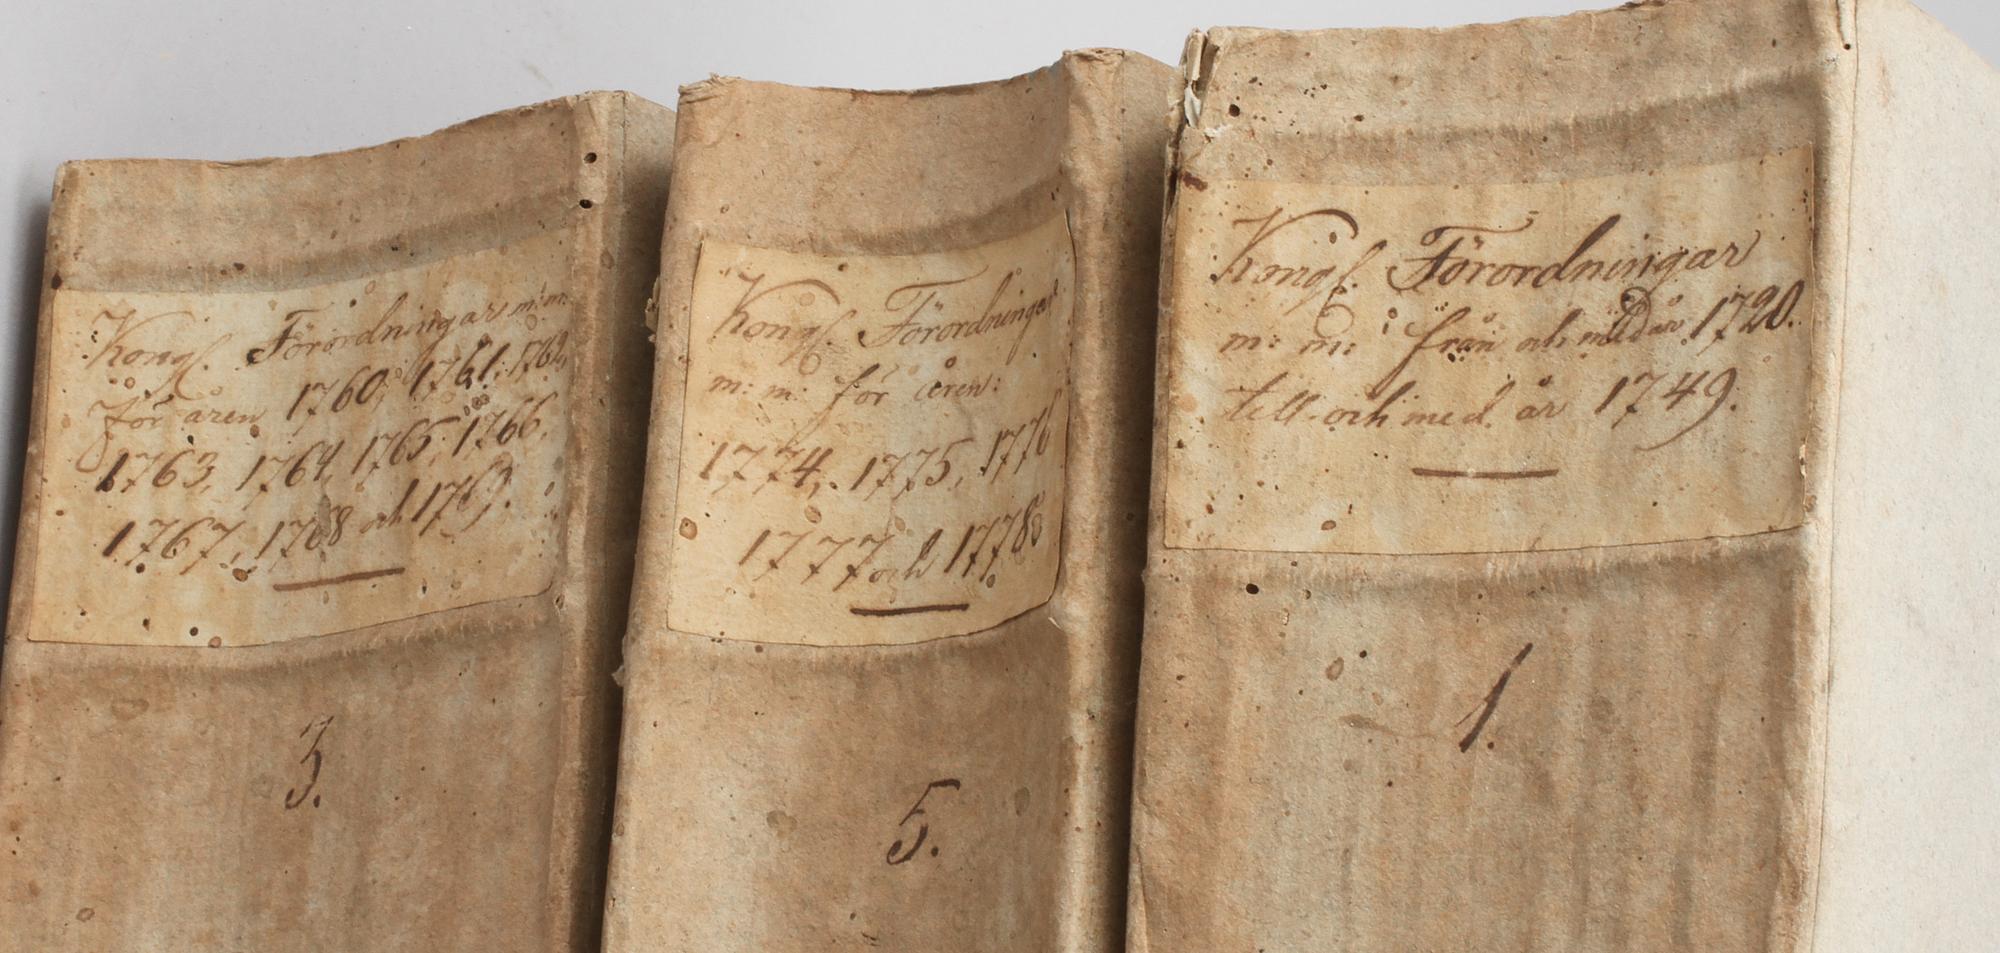 Kongl. Förordningar m: m:
för åren 1760, 1761, 1762,
1763, 1764, 1765, 1766,
1767, 1768 och 1769.
3.
Kongl. Förordningar
m: m: för åren:
1774, 1775, 1776
1777 och 1778
5.
Kongl. Förordningar
m: m: från och med år 1720.
till och med år 1749.
1.